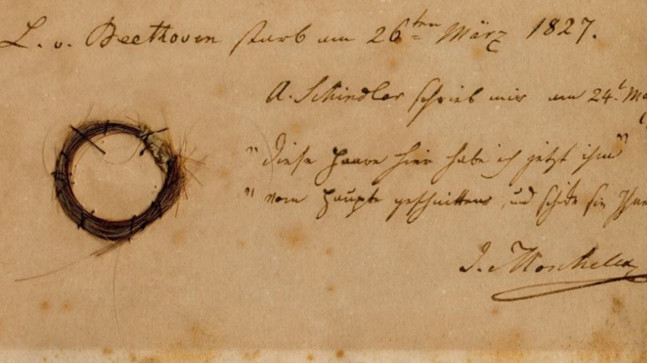 L. v. Beethoven starb am 26ten März 1827.
A. Schindler schrieb mir am 24.
"diese Haare hier habe ich jetzt ihm"
" vom Haupte geschnitten und
I. Moscheles